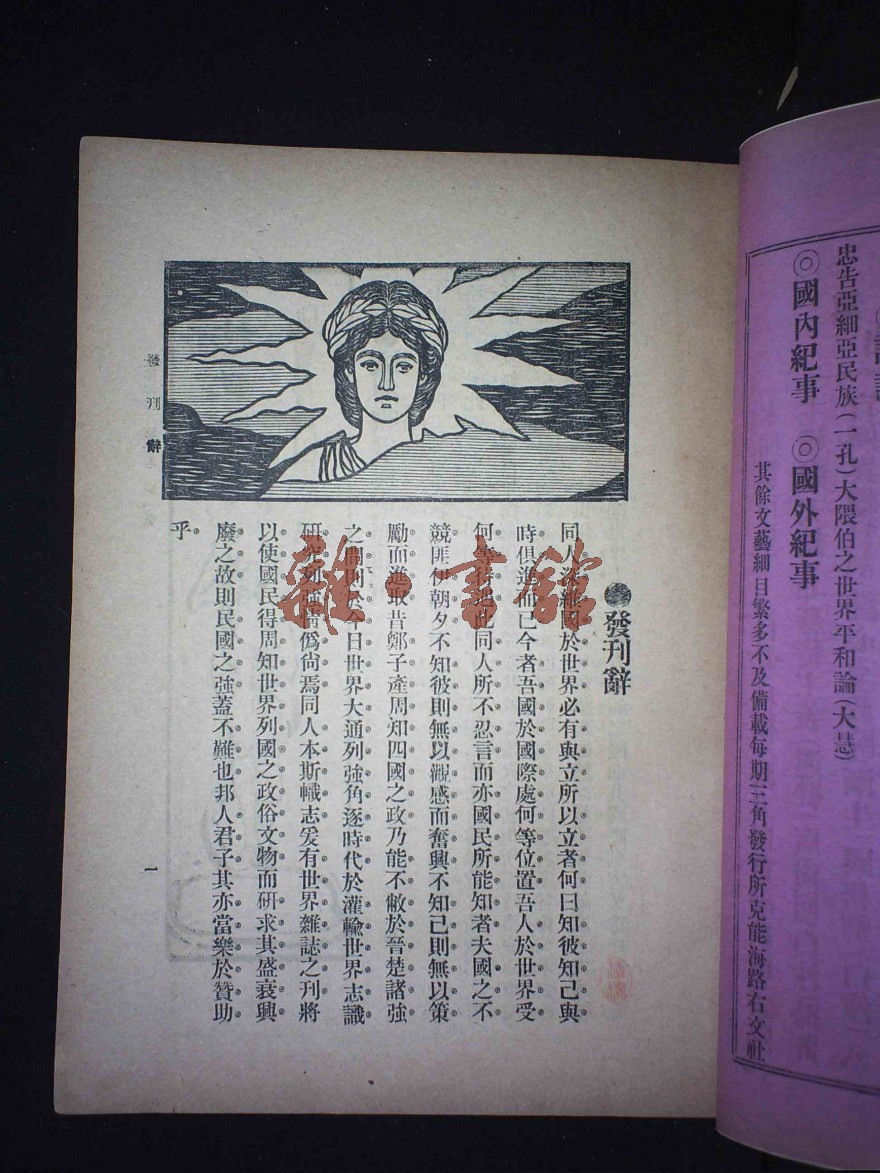 忠告亞細亞民族(一孔)大隈伯之世界平和論(大慧)
◎國內紀事 ◎國外紀事
其餘文藝細目繁多不及備載每期三角發行所克能海路右文社
發刊辭
同人深維國於世界必有與立所以立者何曰知彼知己與
時俱進而已今者吾國於國際處何等位置吾人於世界受
何等待遇此同人所不忍言而亦國民所能知者夫國之不
競匪伊朝夕不知彼則無以觀感而奮興不知己則無以策
勵而進取昔鄭子產周知四國之政乃能不敝於晉楚諸強
之間於今日世界大通列強角逐時代於灌輸世界志識
研究列強情僞尙焉同人本斯幟志爰有世界雜誌之刊將
以使國民得周知世界列國之政俗文物而研求其盛衰興
廢之故則民國之強蓋不難也邦人君子其亦當樂於贊助
乎
發刊辭
一
雜·書館